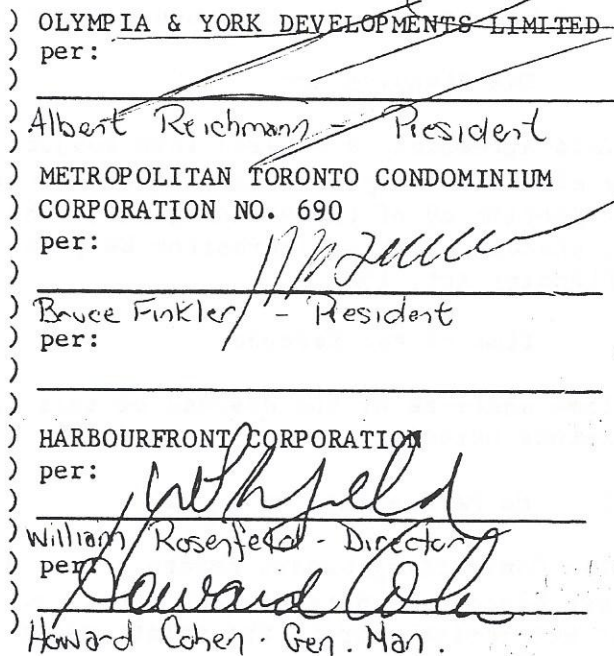 ) OLYMPIA & YORK DEVELOPMENTS LIMITED
) per:
)
)
Albert Reichmann - President
)
) METROPOLITAN TORONTO CONDOMINIUM
) CORPORATION NO. 690
) per:
)
) Bruce Finkler - President
) per:
)
)
) HARBOURFRONT CORPORATION
) per:
)
) William Rosenfeld - Director
) per:
) Howard Cohen
) Howard Cohen. Gen. Man.